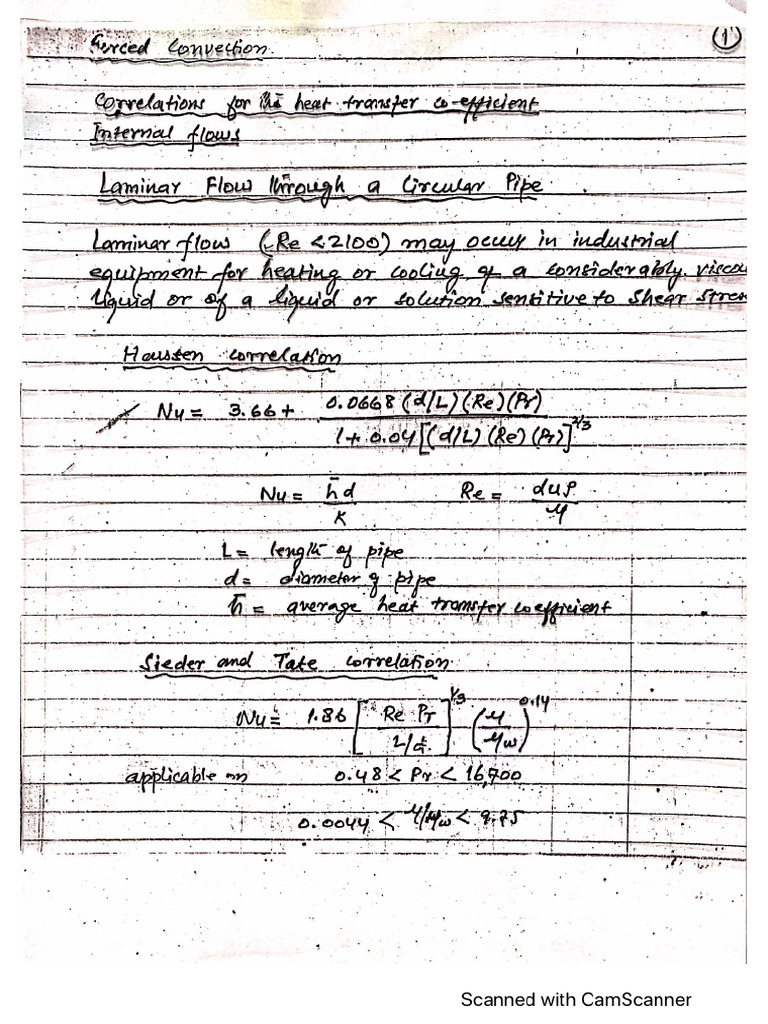 ①
Forced Convection.
Correlations for the heat transfer co-efficient
Internal flows
Laminar Flow through a Circular Pipe
Laminar flow (Re < 2100) may occur in industrial
equipment for heating or cooling of a considerably viscou
liquid or of a liquid or solution sensitive to shear stres
Hausten correlation
Nu = 3.66 + 0.0668 (d/L) (Re) (Pr) / 1 + 0.04 [(d/L) (Re) (Pr)]^2/3
Nu = h̄d / K    Re = duρ / μ
L = length of pipe
d = diameter of pipe
h̄ = average heat transfer coefficient
Sieder and Tate correlation.
Nu = 1.86 [Re Pr / L/d]^1/3 (μ / μw)^0.14
applicable on 0.48 < Pr < 16,700
0.0044 < μ/μw < 9.75
Scanned with CamScanner